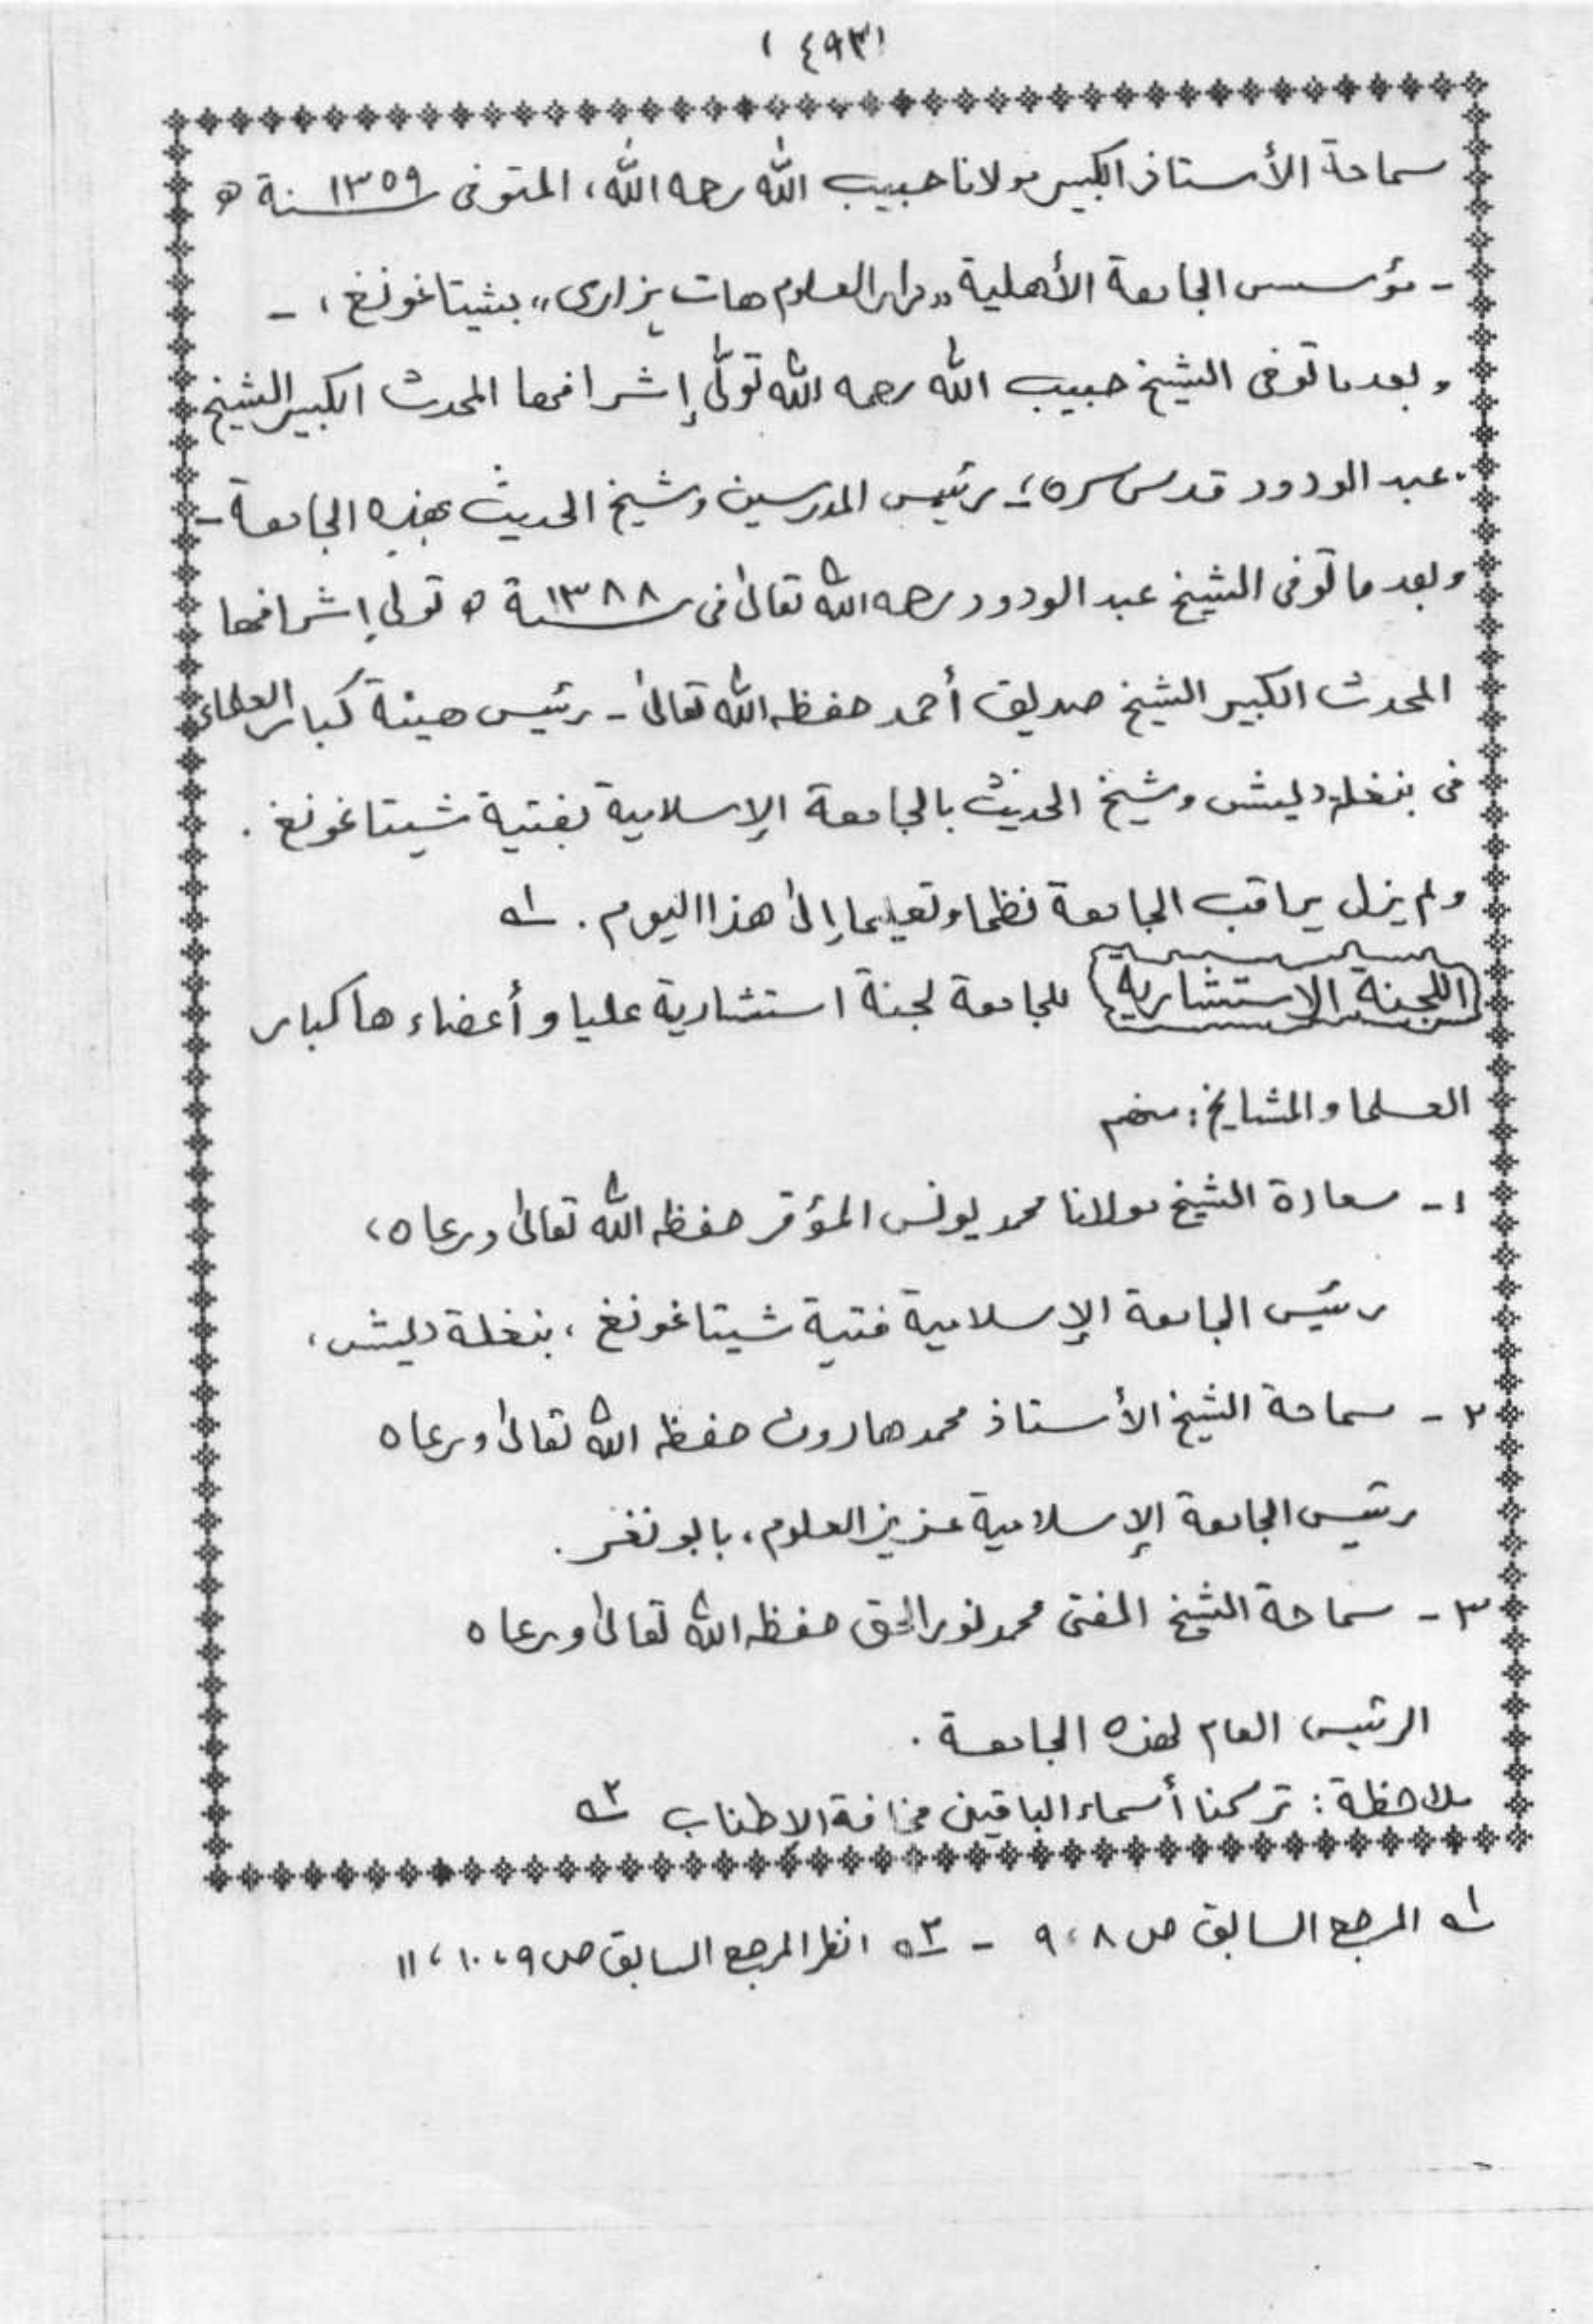 (٤٩٣)
سماحة الأستاذ الكبير مولانا حبيب الله رحمه الله، المتوفى سنة ١٣٥٩ ھ
- مؤسس الجامعة الأهلية "دار العلوم هات هزارى" بشيتاغونغ، -
وبعد ما توفى الشيخ حبيب الله رحمه الله تولَّى إشرافها المحدث الكبير الشيخ
عبد الودود قدس سره، - رئيس المدرسين وشيخ الحديث بهذه الجامعة -
وبعد ما توفى الشيخ عبد الودود رحمه الله تعالىٰ فى سنة ١٣٨٨ ھ تولى إشرافها
المحدث الكبير الشيخ صديق أحمد حفظه الله تعالىٰ - رئيس هيئة كبار العلماء
فى بنغله ديش وشيخ الحديث بالجامعة الإسلامية بفتية شيتاغونغ .
ولم يزل يراقب الجامعة نظما وتعليما إلىٰ هذا اليوم . ١ھ
(اللجنة الاستشارية) للجامعة لجنة استشارية عليا وأعضاء ها كبار
العلما والمشايخ: منهم
١- سعادة الشيخ مولانا محمد يونس المؤقر حفظه الله تعالىٰ ورعاه،
رئيس الجامعة الإسلامية فتية شيتاغونغ، بنغلة ديش،
٢- سماحة الشيخ الأستاذ محمد هارون حفظه الله تعالىٰ ورعاه
رئيس الجامعة الإسلامية عزيز العلوم، بابونغر.
٣- سماحة الشيخ المفتى محمد نور الحق حفظه الله تعالىٰ ورعاه
الرئيس العام لهذه الجامعة .
ملاحظة : تركنا أسماء الباقين مخافة الإطناب ٢ھ
١ھ المرجع السابق ص ٨، ٩ - ٢ھ انظر المرجع السابق ص ٩، ١٠، ١١